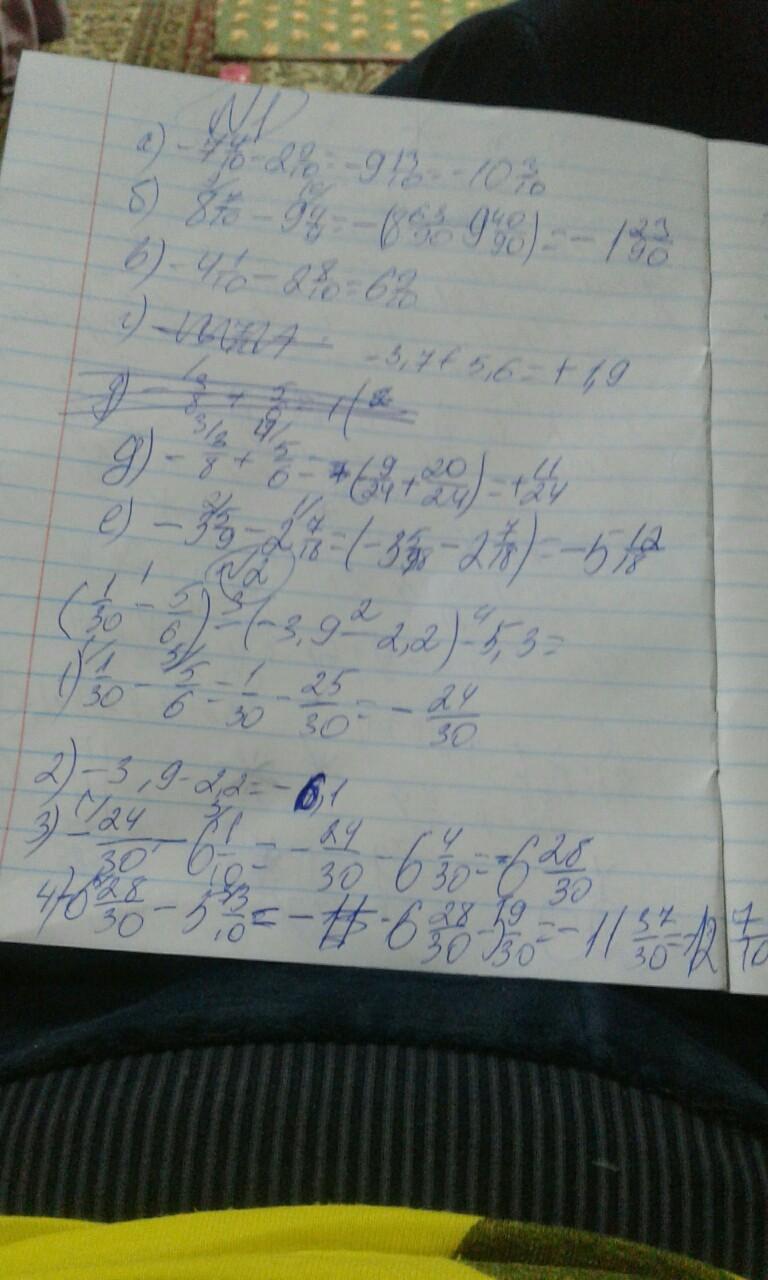 N1
а) -7 4/10 - 2 9/10 = -9 13/10 = -10 3/10
б) 8 7/10 - 9 4/9 = -(8 63/90 9 40/90) = -1 23/90
в) -4 1/10 - 2 8/10 = 6 9/10
г) -3,7 + 5,6 = +1,9
д) - 3/8 + 5/6 = +(9/24 + 20/24) = + 11/24
е) -3 5/9 - 2 7/18 = (-3 5/18 - 2 7/18) = -5 12/18
N2
(1/30 - 5/6) = (-3,9 - 2,2) - 5,3 =
1) 1/30 - 5/6 = 1/30 - 25/30 = - 24/30
2) -3,9 - 2,2 = -6,1
3) - 24/30 - 6 1/10 = - 24/30 - 6 4/30 = -6 28/30
4) -6 28/30 - 5 3/10 = - 6 28/30 - 5 9/30 = -11 37/30 = 12 7/10